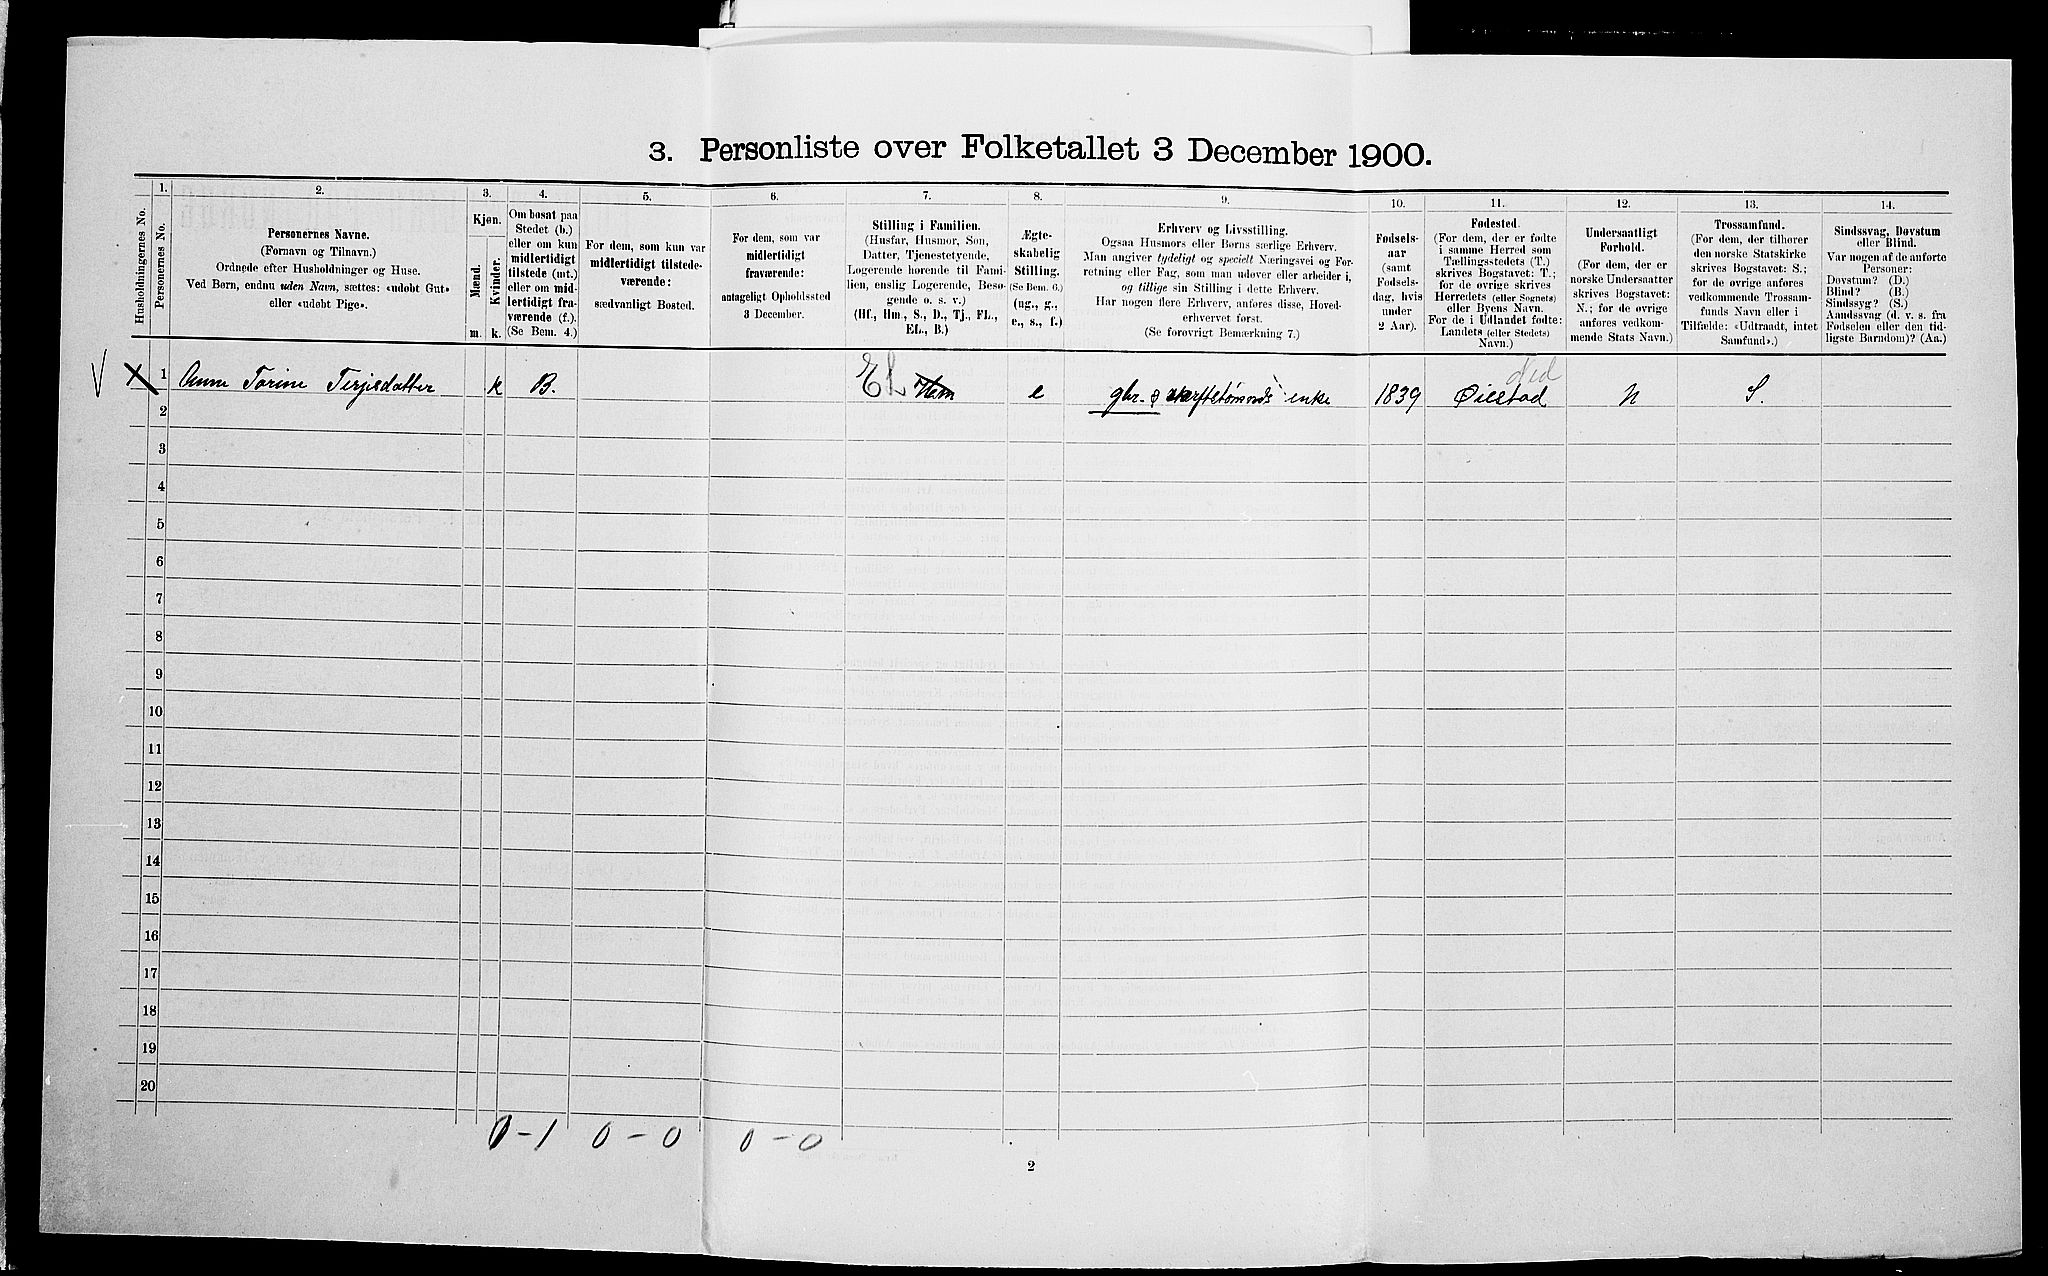 3. Personliste over Folketallet 3 December 1900.
Husholdningernes No.
1.
Personernes No.
2.
Personernes Navne.
(Fornavn og Tilnavn.)
Ordnede efter Husholdninger og Huse.
Ved Børn, endnu uden Navn, sættes: «udøbt Gut»
eller «udøbt Pige».
3.
Kjøn.
Mænd.
Kvinder.
m.
k.
4.
Om bosat paa
Stedet (b.)
eller om kun
midlertidigt
tilstede (mt.)
eller om mid-
lertidigt fra-
værende (f.).
(Se Bem. 4.)
5.
For dem, som kun var
midlertidigt tilstede-
værende:
sædvanligt Bosted.
6.
For dem, som var
midlertidigt
fraværende:
antageligt Opholdssted
3 December.
7.
Stilling i Familien.
(Husfar, Husmor, Søn,
Datter, Tjenestetyende,
Logerende hørende til Fami-
lien, enslig Logerende, Besø-
gende o. s. v.)
(Hf., Hm., S., D., Tj., FL.,
EL., B.)
8.
Ægte-
skabelig
Stilling.
(Se Bem. 6.)
(ug., g.,
e., s., f.)
9.
Erhverv og Livsstilling.
Ogsaa Husmors eller Børns særlige Erhverv.
Man angiver tydeligt og specielt Næringsvei og For-
retning eller Fag, som man udøver eller arbeider i,
og tillige sin Stilling i dette Erhverv.
Har nogen flere Erhverv, anføres disse, Hoved-
erhvervet først.
(Se forøvrigt Bemærkning 7.)
10.
Fødsels-
aar
(samt
Fødsels-
dag, hvis
under
2 Aar).
11.
Fødested.
(For dem, der er fødte
i samme Herred som
Tællingsstedets (T.)
skrives Bogstavet: T.;
for de øvrige skrives
Herredets (eller Sognets)
eller Byens Navn.
For de i Udlandet fødte:
Landets (eller Stedets)
Navn.)
12.
Undersaatligt
Forhold.
(For dem, der er
norske Undersaatter
skrives Bogstavet:
N.; for de øvrige
anføres vedkom-
mende Stats Navn.)
13.
Trossamfund.
(For dem, der tilhører
den norske Statskirke
skrives Bogstavet: S.;
for de øvrige anføres
vedkommende Trossam-
funds Navn eller i
Tilfælde: «Udtraadt, intet
Samfund».)
14.
Sindssvag, Døvstum
eller Blind.
Var nogen af de anførte
Personer:
Døvstum? (D.)
Blind? (B.)
Sindssyg? (S.)
Aandssvag (d. v. s. fra
Fødselen eller den tid-
ligste Barndom)? (Aa.)
V X 1 Anne Torine Terjesdatter k B. EL Hm e gbr. & enke 1839 Øiestad Ned N S.
2
3
4
5
6
7
8
9
10
11
12
13
14
15
16
17
18
19
20
0 - 1 0 - 0 0 - 0
2